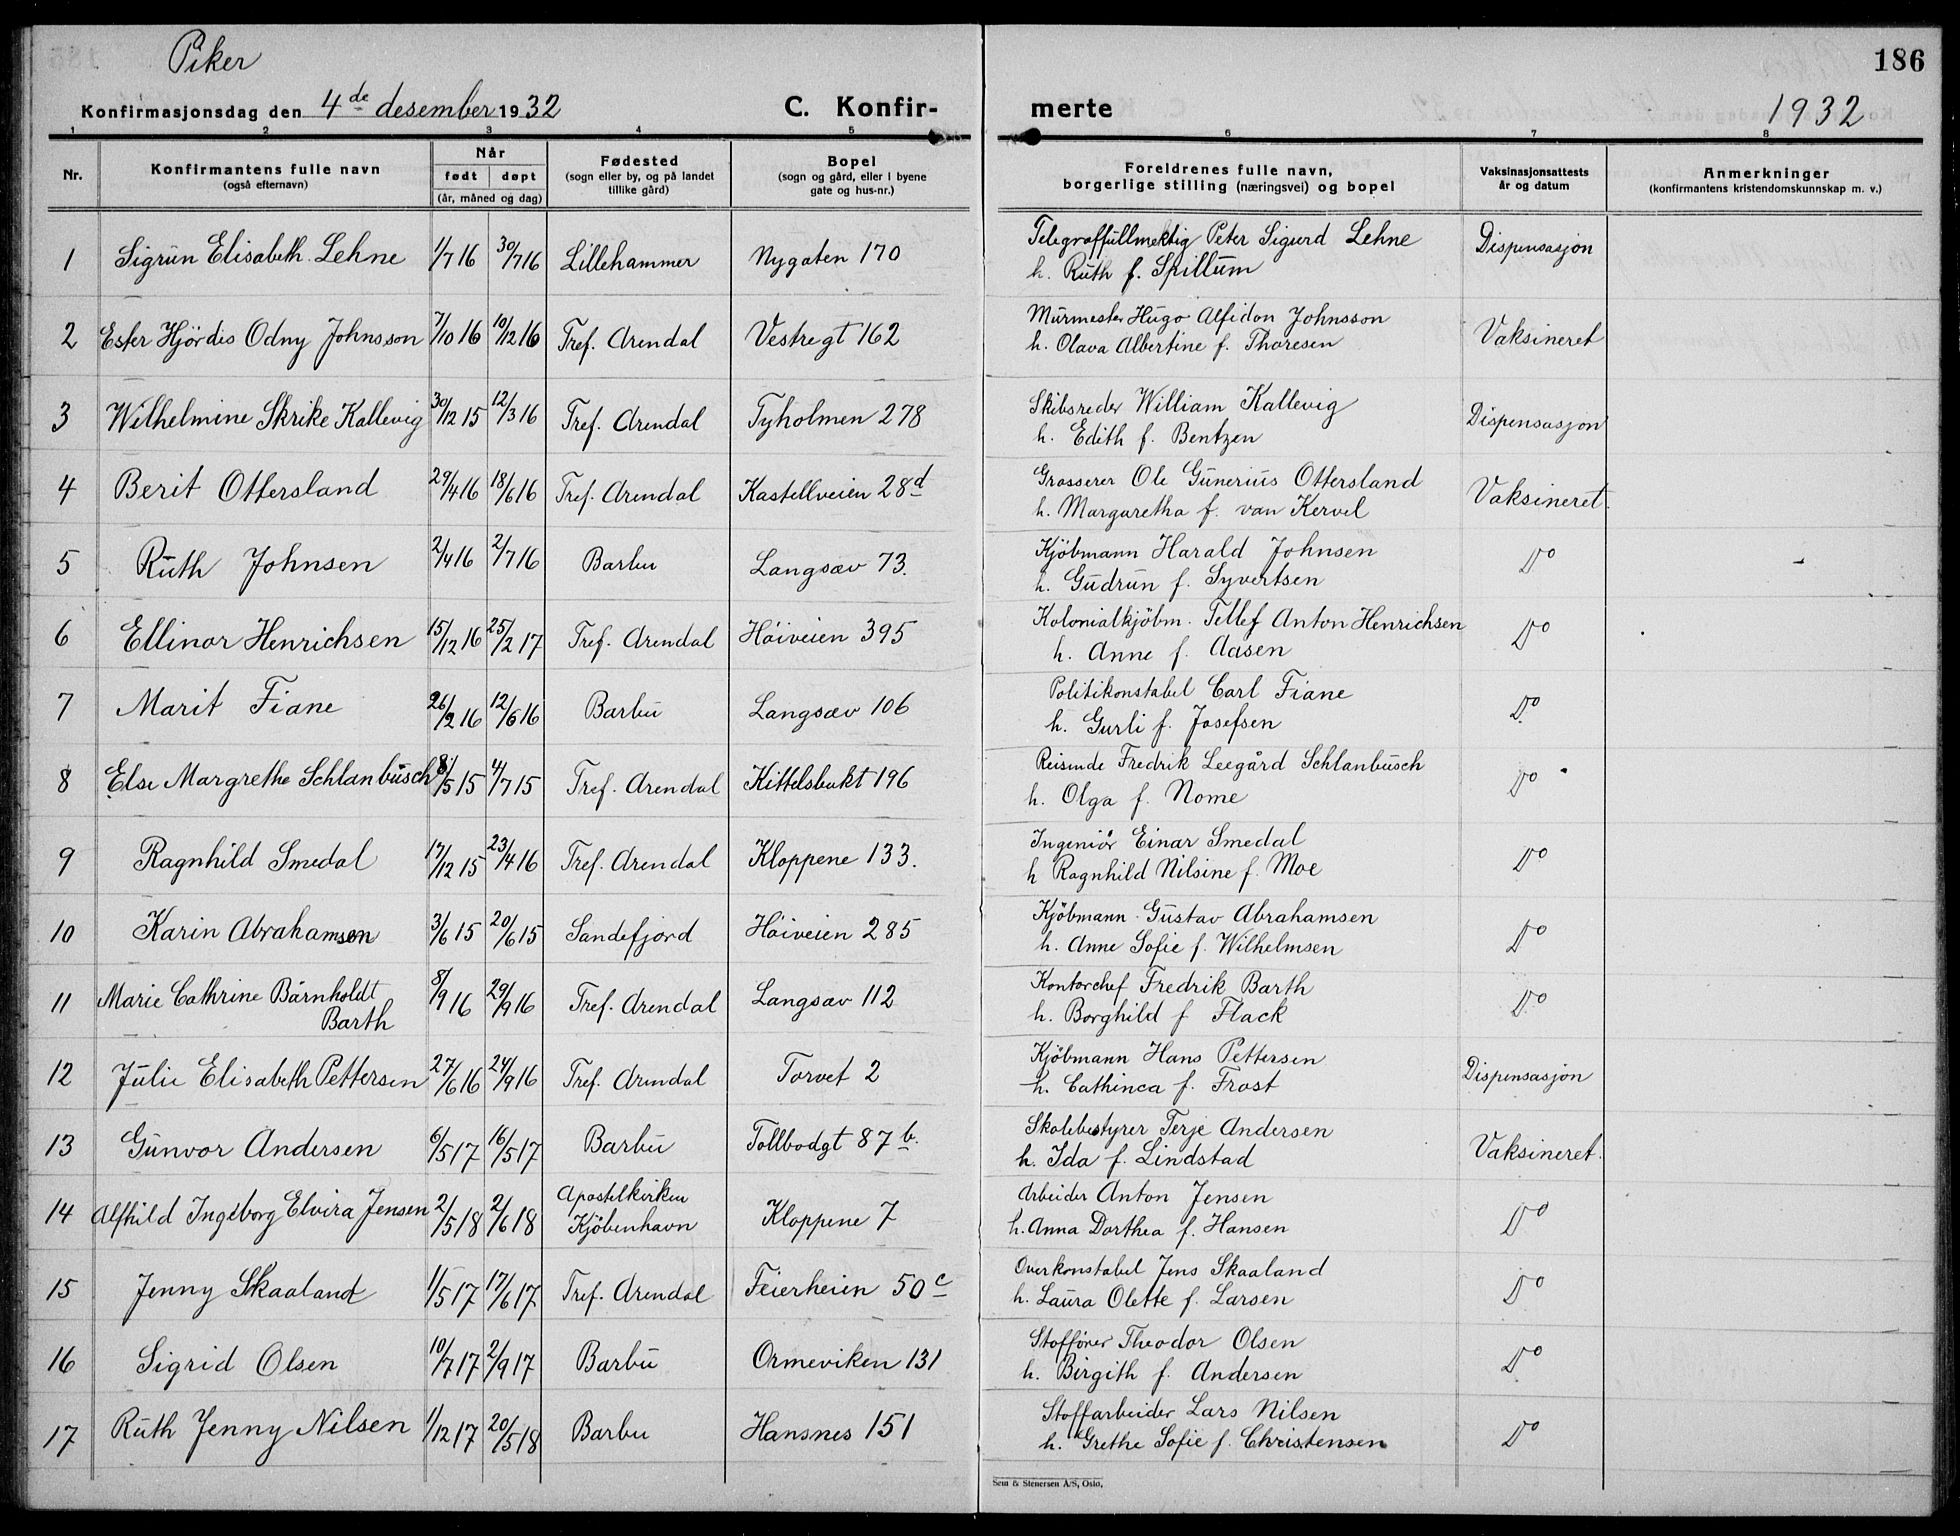 186
Piker
Konfirmasjonsdag den 4de desember 1932 C. Konfir- merte 1932
1 2 3 4 5 6 7 8
Nr. Konfirmantens fulle navn (også efternavn) Når født døpt (år, måned og dag) Fødested (sogn eller by, og på landet tillike gård) Bopel (sogn og gård, eller i byene gate og hus-nr.) Foreldrenes fulle navn, borgerlige stilling (næringsvei) og bopel Vaksinasjonsattests år og datum Anmerkninger (konfirmantens kristendomskunnskap m. v.)
1 Sigrun Elisabeth Lehne 1/7 16 30/7 16 Lillehammer Nygaten 170 Telegraffullmektig Peter Sigurd Lehne Dispensasjon
h. Ruth f. Spillum
2 Ester Hjördis Odny Johnsson 7/10 16 10/12 16 Tref. Arendal Vestregt 162 Murmester Hugo Alfidon Johnsson Vaksineret
h. Olava Albertine f. Thoresen
3 Wilhelmine Skrike Kallevig 30/12 15 12/3 16 Tref. Arendal Tyholmen 278 Skibsreder William Kallevig Dispensasjon
h. Edith f. Bentzen
4 Berit Ottersland 29/4 16 18/6 16 Tref. Arendal Kastellveien 28d Grosserer Ole Gunerius Ottersland Vaksineret.
h. Margaretha f. van Kervel
5 Ruth Johnsen 2/4 16 2/7 16 Barbu Langsæv 73. Kjöbmann Harald Johnsen Do
h. Gudrun f. Syvertsen
6 Ellinor Henrichsen 15/12 16 25/2 17 Tref. Arendal Höiveien 395 Kolonialkjöbm. Tellef Anton Henrichsen Do
h. Anne f. Aasen
7 Marit Fiane 26/2 16 12/6 16 Barbu Langsæv 106 Politikonstabel Carl Fiane Do
h. Gurli f. Josefsen
8 Else Margrethe Schlanbusch 8/5 15 4/7 15 Tref. Arendal Kittelsbukt 196 Reisende Fredrik Leegård Schlanbusch Do
h. Olga f. Nome
9 Ragnhild Smedal 17/12 15 23/4 16 Tref. Arendal Kloppene 133. Ingeniör Einar Smedal Do
h Ragnhild Nilsine f. Moe
10 Karin Abrahamsen 3/6 15 20/6 15 Sandefjord Höiveien 285 Kjöbmann Gustav Abrahamsen Do
h. Anne Sofie f. Wilhelmsen
11 Marie Cathrine Bärnholdt 8/9 16 29/9 16 Tref. Arendal Langsæv 112 Kontorchef Fredrik Barth Do
Barth h. Borghild f Flack
12 Julie Elisabeth Pettersen 27/6 16 24/9 16 Tref. Arendal Torvet 2 Kjöbmann Hans Pettersen Dispensasjon
h. Cathinca f. Frost
13 Gunvor Andersen 6/5 17 16/5 17 Barbu Tollbodgt 87b. Skolebestyrer Terje Andersen Vaksineret.
h. Ida f. Lindstad
14 Alfhild Ingeborg Elvira Jensen 2/5 18 2/6 18 Apostelkirken Kjöbenhavn Kloppene 7 Arbeider Anton Jensen Do
h. Anna Dorthea f. Hansen
15 Jenny Skaaland 1/5 17 17/6 17 Tref. Arendal Feierheien 50c Overkonstabel Jens Skaaland Do
h. Laura Olette f. Larsen
16 Sigrid Olsen 10/7 17 2/9 17 Barbu Ormeviken 131 Stoffører Theodor Olsen Do
h. Birgith f. Andersen
17 Ruth Jenny Nilsen 1/12 17 20/5 18 Barbu Hansnes 151 Stoffarbeider Lars Nilsen Do
h. Grethe Sofie f. Christensen
Sem & Stenersen A/S, Oslo.